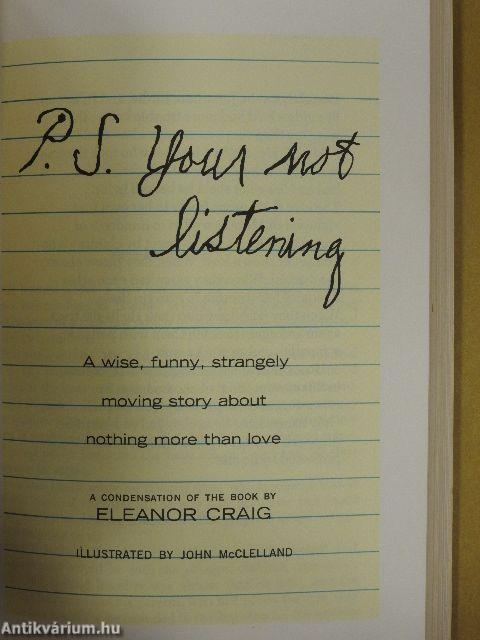 P.S. Your not
listening
A wise, funny, strangely
moving story about
nothing more than love
A CONDENSATION OF THE BOOK BY
ELEANOR CRAIG
ILLUSTRATED BY JOHN McCLELLAND
Antikvárium.hu